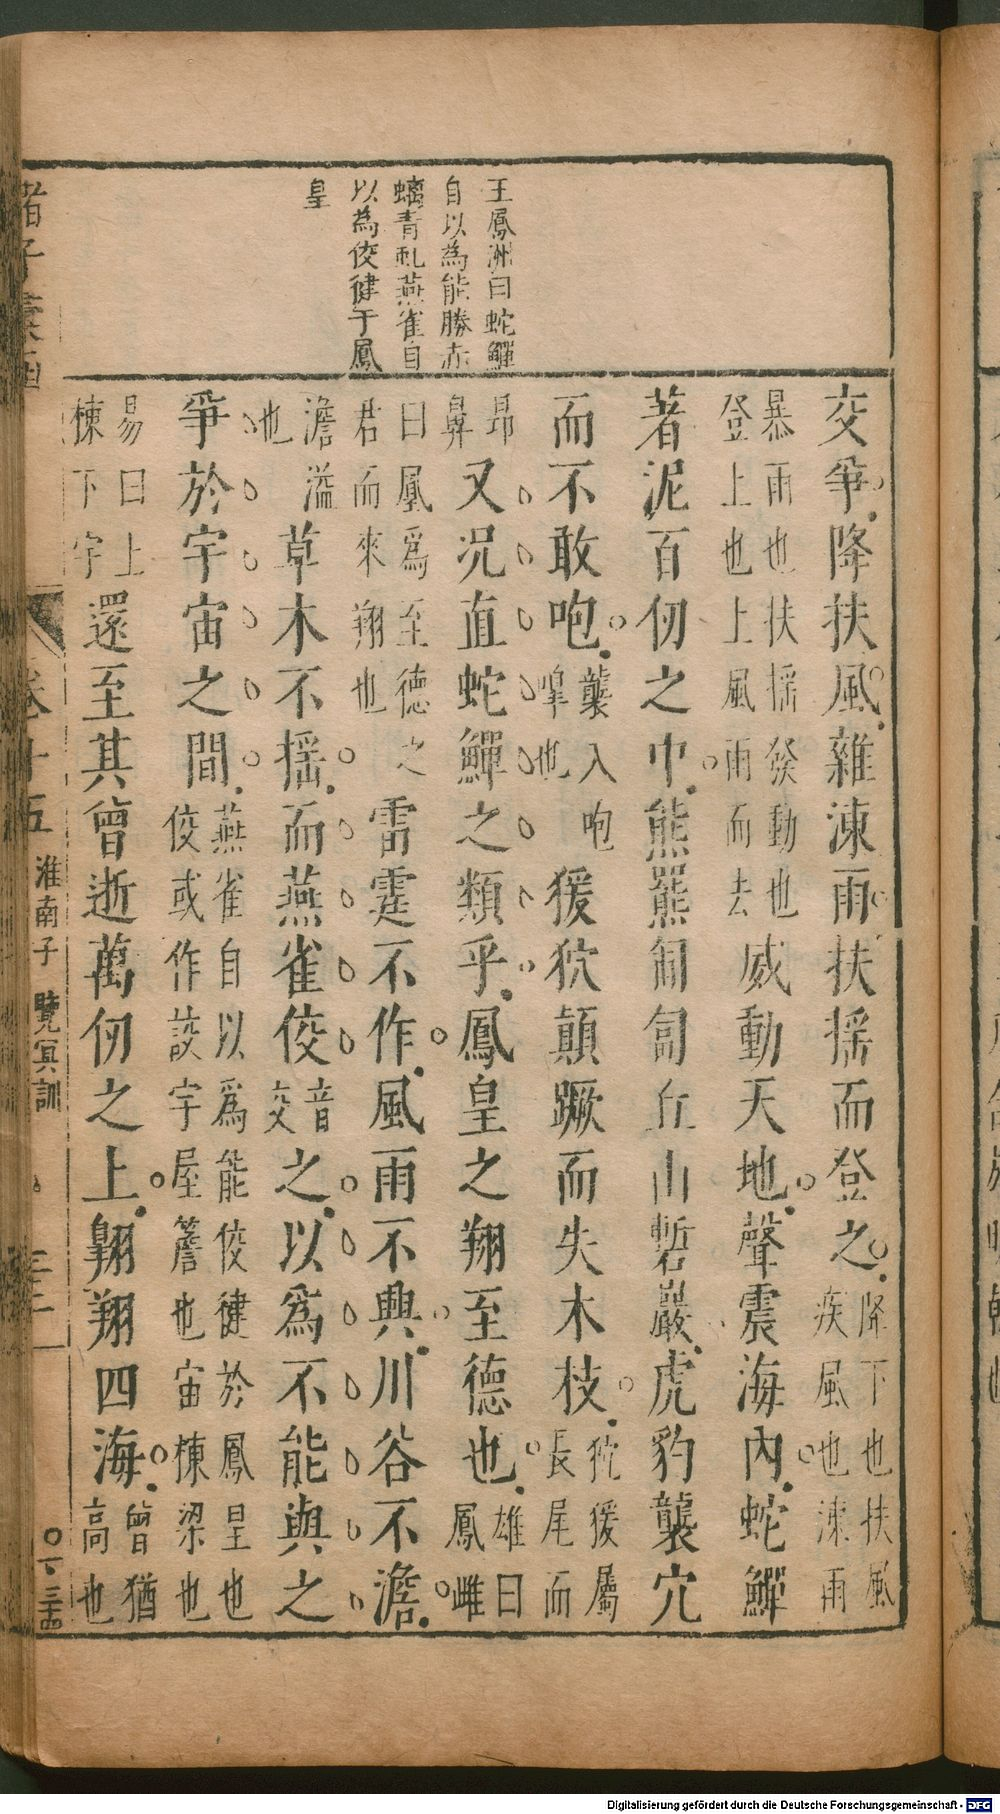 王鳳洲曰蛇鱓
自以為能勝赤
螭青虬燕雀自
以為佼健于鳳
皇
交爭降扶風雜涷雨扶搖而登之降下也扶風疾風也涷雨
暴雨也扶搖發動也登上也上風雨而去威動天地聲震海內蛇鱓
著泥百仞之中熊羆匍匐丘山磛巖虎豹襲穴
而不敢咆襲入咆嘷也猨狖顛蹶而失木枝狖猨屬長尾而
昂鼻又況直蛇鱓之類乎鳳皇之翔至德也雄曰鳳雌
曰凰為至德之君而來翔也雷霆不作風雨不興川谷不澹
澹溢也草木不搖而燕雀佼音交之以為不能與之
爭於宇宙之間燕雀自以為能佼健於鳳皇也佼或作詨宇屋簷也宙棟梁也
易曰上棟下宇還至其曾逝萬仞之上翺翔四海曾猶高也
諸子彙函
卷十五
淮南子 覽冥訓
三十一
〇一三十四
Digitalisierung gefördert durch die Deutsche Forschungsgemeinschaft - DFG